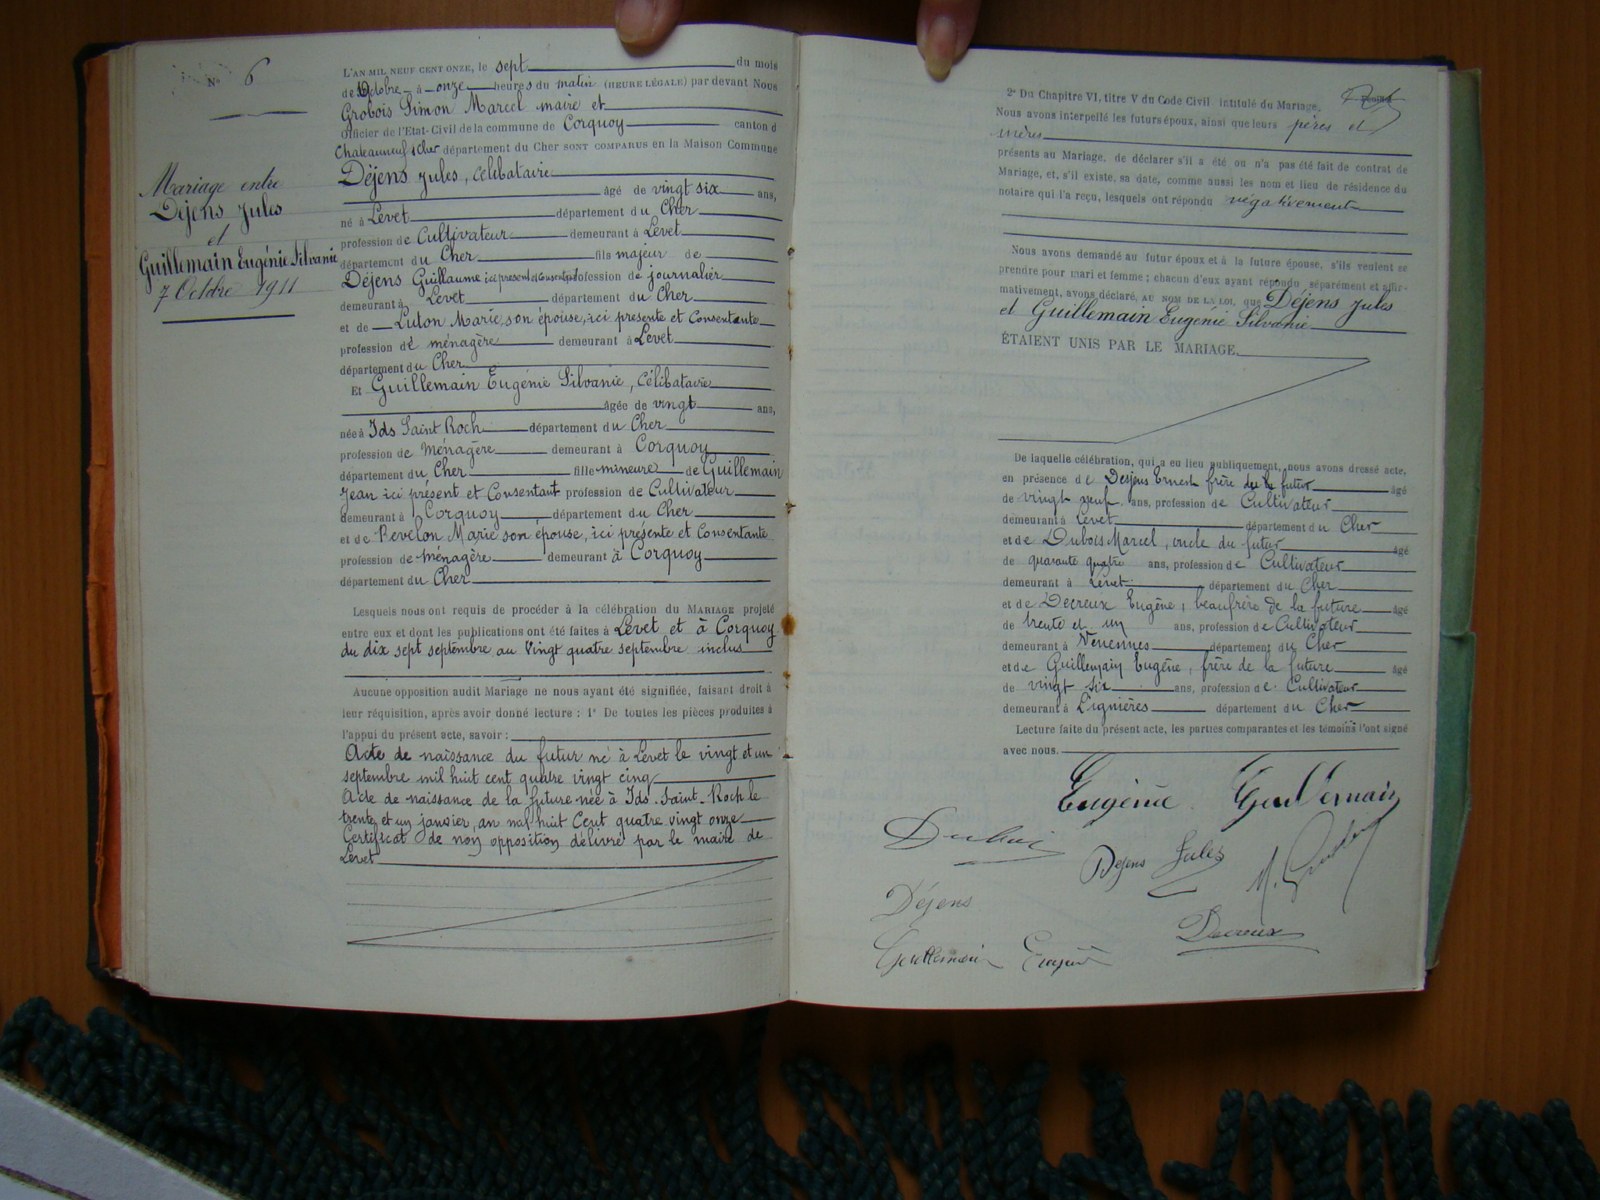 N° 6
Mariage entre
Déjens Jules
et
Guillemain Eugénie Silvanie
7 Octobre 1911
L'AN MIL NEUF CENT ONZE, le sept du mois
de Octobre à onze heures du matin (HEURE LÉGALE) par devant Nous
Grobois Simon Marcel maire et
officier de l'Etat-Civil de la commune de Corquoy canton d
Chateauneuf s Cher département du Cher SONT COMPARUS en la Maison Commune
Déjens Jules, célibataire
âgé de vingt six ans,
né à Levet département du Cher
profession de Cultivateur demeurant à Levet
département du Cher fils majeur de
Déjens Guillaume ici présent et consentant profession de journalier
demeurant à Levet département du Cher
et de Luton Marie, son épouse, ici présente et Consentante
profession de ménagère demeurant à Levet
département du Cher
Et Guillemain Eugénie Silvanie, célibataire
âgée de vingt ans,
née à Ids Saint Roch département du Cher
profession de Ménagère demeurant à Corquoy
département du Cher fille mineure de Guillemain
Jean ici présent et Consentant profession de Cultivateur
demeurant à Corquoy département du Cher
et de Revelon Marie son épouse, ici présente et Consentante
profession de ménagère demeurant à Corquoy
département du Cher
Lesquels nous ont requis de procéder à la célébration du MARIAGE projeté
entre eux et dont les publications ont été faites à Levet et à Corquoy
du dix sept septembre au Vingt quatre septembre inclus
Aucune opposition audit Mariage ne nous ayant été signifiée, faisant droit à
leur réquisition, après avoir donné lecture : 1° De toutes les pièces produites à
l'appui du présent acte, savoir :
Acte de naissance du futur né à Levet le vingt et un
septembre mil huit cent quatre vingt cinq
Acte de naissance de la future née à Ids-Saint-Roch le
trente et un janvier, an mil huit Cent quatre vingt onze
Certificat de non opposition délivré par le maire de
Levet
2° Du Chapitre VI, titre V du Code Civil intitulé du Mariage,
Nous avons interpellé les futurs époux, ainsi que leurs pères et
mères
présents au Mariage, de déclarer s'il a été ou n'a pas été fait de contrat de
Mariage, et, s'il existe, sa date, comme aussi les nom et lieu de résidence du
notaire qui l'a reçu, lesquels ont répondu négativement
Nous avons demandé au futur époux et à la future épouse, s'ils veulent se
prendre pour mari et femme ; chacun d'eux ayant répondu séparément et affir-
mativement, avons déclaré, AU NOM DE LA LOI, que Déjens Jules
et Guillemain Eugénie Silvanie
ÉTAIENT UNIS PAR LE MARIAGE.
De laquelle célébration, qui a eu lieu publiquement, nous avons dressé acte,
en présence de Desjens Ernest frère du futur âgé
de vingt neuf ans, profession de Cultivateur
demeurant à Levet département du Cher
et de Dubois Marcel, oncle du futur âgé
de quarante quatre ans, profession de Cultivateur
demeurant à Levet département du Cher
et de Decreux Eugène, beaufrère de la future âgé
de trente et un ans, profession de Cultivateur
demeurant à Venesmes département du Cher
et de Guillemain Eugène, frère de la future âgé
de vingt six ans, profession de Cultivateur
demeurant à Lignières département du Cher
Lecture faite du présent acte, les parties comparantes et les témoins l'ont signé
avec nous.
Eugénie Guillemain
Dubois
Dejens Jules
Déjens
Decreux
Guillemain Eugène